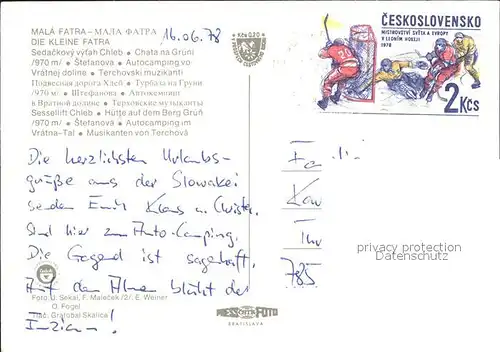 MALÁ FATRA – МАЛА ФАТРА
DIE KLEINE FATRA
Sedačkový výťah Chleb • Chata na Grúni
/970 m/ • Štefanová • Autocamping vo
Vrátnej doline • Terchovskí muzikanti
Подвесная дорога Хлеб • Турбаза на Груни
/970 м/ • Штефанова • Автокемпинг
в Вратной долине • Терховские музыканты
Sessellift Chleb • Hütte auf dem Berg Grúň
/970 m/ • Štefanová • Autocamping im
Vrátna-Tal • Musikanten von Terchová
16.06.78
Kčs 0,20
ČESKOSLOVENSKO
MISTROVSTVÍ SVĚTA A EVROPY
V LEDNÍM HOKEJI
1978
2 Kčs
Die herzlichsten Urlaubs-
grüße aus der Slowakei
senden Euch Klaus u. Christa.
Sind hier zum Auto-Camping.
Die Gegend ist sagenhaft.
Auf den Almen blüht der
Enzian!
785
privacy protection
Datenschutz
Foto: J. Sekal, F. Maleček /2/, E. Weiner
O. Fogel
Tlač: Grafobal Skalica
FOTO
BRATISLAVA